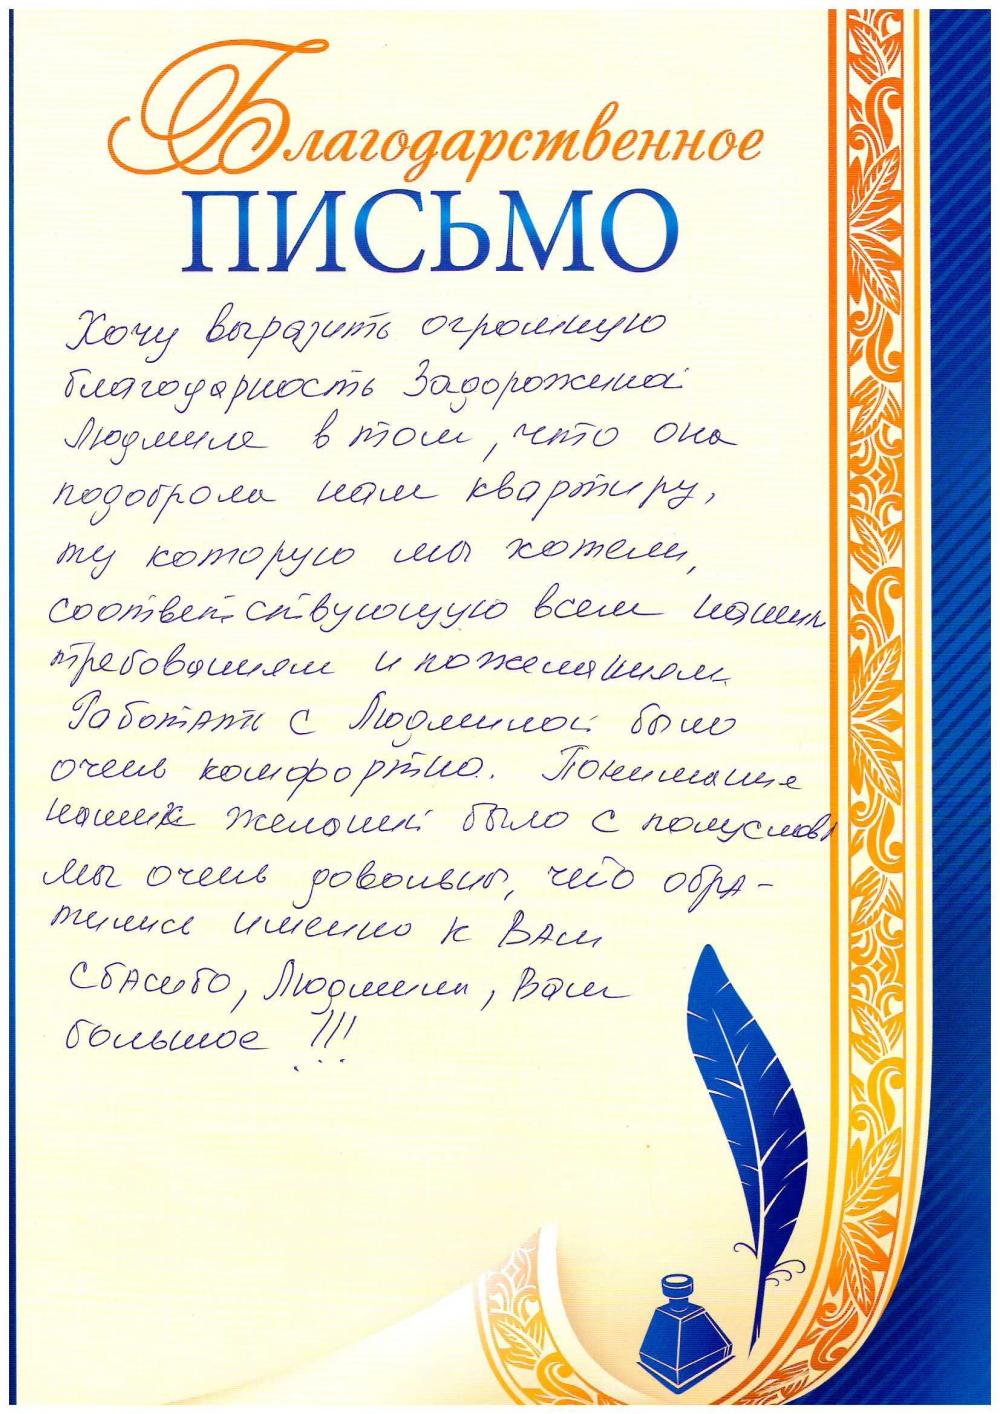 Благодарственное
ПИСЬМО
Хочу выразить огромную
благодарность Задорожной
Людмиле в том, что она
подоброла нам квартиру,
ту которую мы хотели,
соответствующую всем нашим
требованиям и пожеланиям.
Работать с Людмилой было
очень комфортно. Понимание
наших желаний было с полуслова
мы очень довольны, что обра-
тились именно к Вам
Спасибо, Людмила, Вам
большое !!!